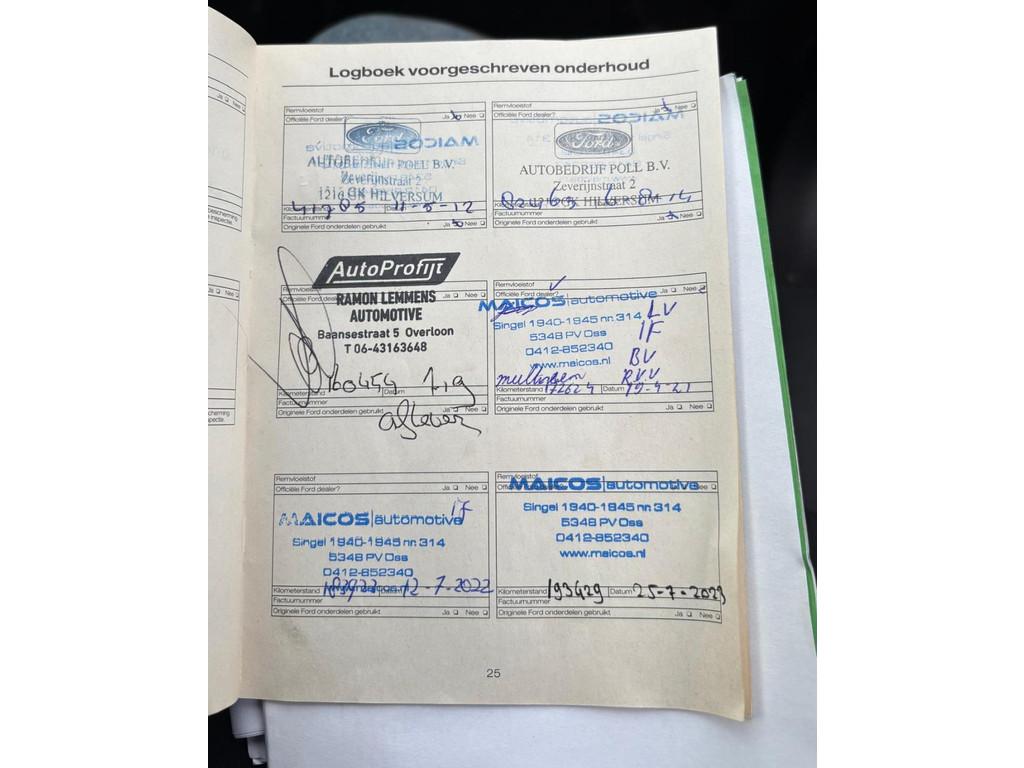 Logboek voorgeschreven onderhoud
Remvloeistof
Officiële Ford dealer? Ja Nee
Ford
AUTOBEDRIJF POLL B.V.
Zeverijnstraat 2
1216 GK HILVERSUM
11-5-12
Factuurnummer
Originele Ford onderdelen gebruikt Ja Nee
Remvloeistof Ja Nee
Officiële Ford dealer?
Ford
AUTOBEDRIJF POLL B.V.
Zeverijnstraat 2
HILVERSUM
Factuurnummer
Originele Ford onderdelen gebruikt Ja Nee
Remvloeistof
Ja Nee
AutoProfijt
RAMON LEMMENS
AUTOMOTIVE
Baansestraat 5 Overloon
T 06-43163648
160454
Kilometerstand Datum
Factuurnummer
Originele Ford onderdelen gebruikt Ja Nee
Remvloeistof
Officiële Ford dealer? Ja Nee
MAICOS automotive LV
Singel 1940-1945 nr. 314
5348 PV Oss IF
0412-852340
www.maicos.nl BV
RVV
Kilometerstand 172624 Datum
Factuurnummer
Originele Ford onderdelen gebruikt Ja Nee
Remvloeistof
Officiële Ford dealer? Ja Nee
IF
MAICOS automotive
Singel 1940-1945 nr. 314
5348 PV Oss
0412-852340
Kilometerstand 12-7-2022
Factuurnummer
Originele Ford onderdelen gebruikt Ja Nee
Remvloeistof
MAICOS automotive
Singel 1940-1945 nr. 314
5348 PV Oss
0412-852340
www.maicos.nl
Kilometerstand 193429 Datum 25-7-2023
Factuurnummer
Originele Ford onderdelen gebruikt Ja Nee
25